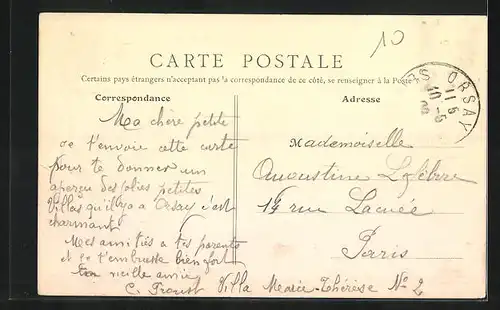 10
CARTE POSTALE
Certains pays étrangers n'acceptant pas la correspondance de ce côté, se renseigner à la Poste
Correspondance
Adresse
ORSAY
Ma chère petite
je t'envoie cette carte
pour te donner un
aperçu des jolies petites
villas qu'il y a a Orsay c'est
charmant
Mes amitiés a tes parents
et je t'embrasse bien fort
Ta vieille amie
C. Proust Villa Marie-Thérèse No 2
Mademoiselle
Augustine Lefebvre
14 rue Lacuée
Paris